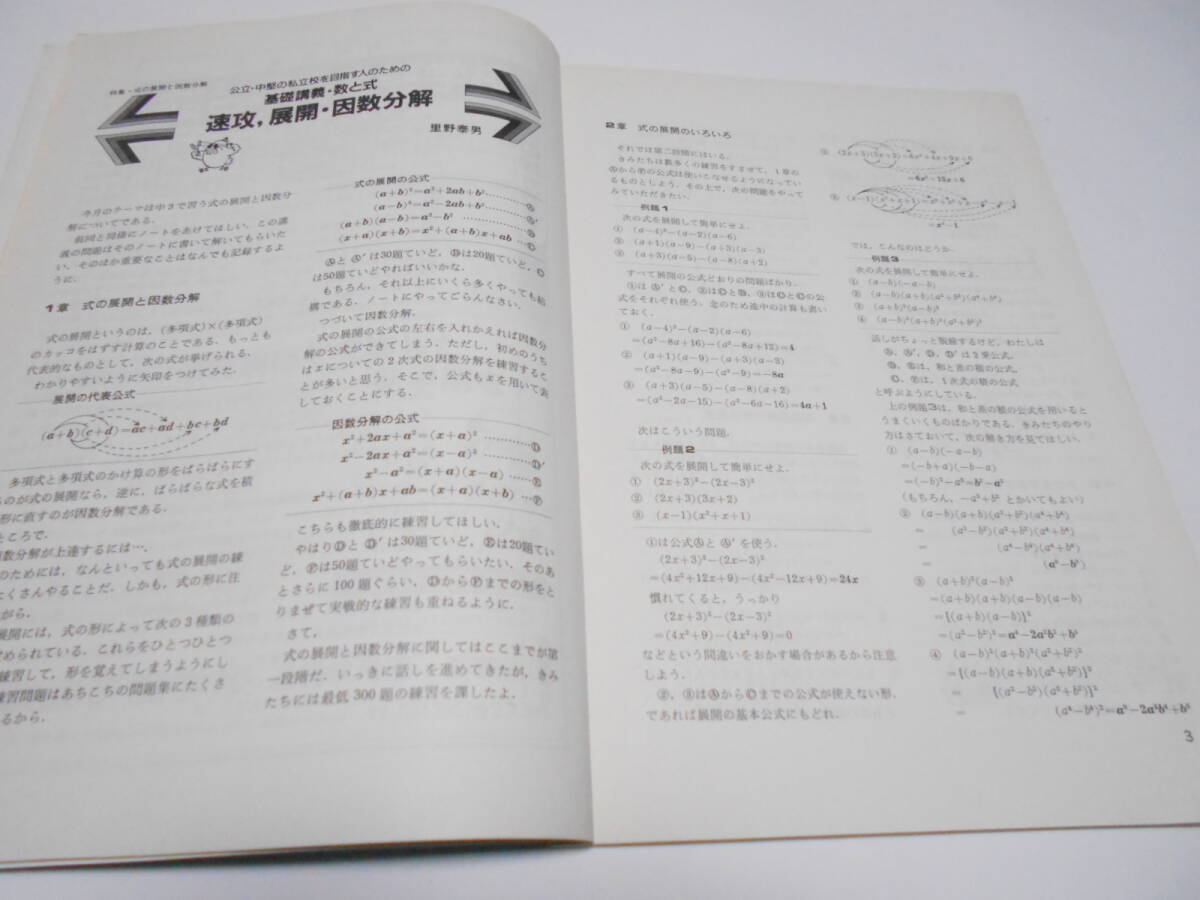 特集・式の展開と因数分解
公立・中堅の私立校を目指す人のための
基礎講義・数と式
速攻，展開・因数分解
里野泰男
今月のテーマは中3で習う式の展開と因数分
解についてである．
前回と同様にノートをあけてほしい．この講
義の問題はそのノートに書いて解いてもらいた
い．そのほか重要なことはなんでも記録するよ
うに．
1章 式の展開と因数分解
式の展開というのは，(多項式)×(多項式)
のカッコをはずす計算のことである．もっとも
代表的なものとして，次の式が挙げられる．
わかりやすいように矢印をつけてみた．
展開の代表公式
(a+b)(c+d)=ac+ad+bc+bd
多項式と多項式のかけ算の形をばらばらにす
るのが式の展開なら，逆に，ばらばらな式を積
形に直すのが因数分解である．
ところで．
因数分解が上達するには…．
のためには，なんといっても式の展開の練
たくさんやることだ．しかも，式の形に注
がら．
展開には，式の形によって次の3種類の
められている．これらをひとつひとつ
練習して，形を覚えてしまうようにし
練習問題はあちこちの問題集にたくさ
るから．
式の展開の公式
(a+b)²=a²+2ab+b² ……… Ⓐ
(a−b)²=a²−2ab+b² ……… Ⓐ′
(a+b)(a−b)=a²−b² ……… Ⓑ
(x+a)(x+b)=x²+(a+b)x+ab … Ⓒ
ⒶとⒶ′は30題ていど，Ⓑは20題ていど，Ⓒ
は50題ていどやればいいかな．
もちろん，それ以上にいくら多くやっても結
構である．ノートにやってごらんなさい．
つづいて因数分解．
式の展開の公式の左右を入れかえれば因数分
解の公式ができてしまう．ただし，初めのうち
はxについての2次式の因数分解を練習するこ
とが多いと思う．そこで，公式もxを用いて表
しておくことにする．
因数分解の公式
x²+2ax+a²=(x+a)² ……… Ⓓ
x²−2ax+a²=(x−a)² ……… Ⓓ′
x²−a²=(x+a)(x−a) …… Ⓔ
x²+(a+b)x+ab=(x+a)(x+b) … Ⓕ
こちらも徹底的に練習してほしい．
やはりⒹとⒹ′は30題ていど，Ⓔは20題てい
ど，Ⓕは50題ていどやってもらいたい．そのあ
とさらに100題ぐらい，ⒹからⒻまでの形をと
りまぜて実戦的な練習も重ねるように．
さて，
式の展開と因数分解に関してはここまでが第
一段階だ．いっきに話しを進めてきたが，きみ
たちには最低300題の練習を課したよ．
2章 式の展開のいろいろ
それでは第二段階にはいる．
きみたちは数多くの練習をすすませて，1章の
ⒶからⒻの公式は使いこなせるようになってい
るものとしよう．その上で，次の問題をやって
みていただきたい．
例題1
次の式を展開して簡単にせよ．
① (a−4)²−(a−2)(a−6)
② (a+1)(a−9)−(a+3)(a−3)
③ (a+3)(a−5)−(a−8)(a+2)
すべて展開の公式どおりの問題ばかり．
①はⒶ′とⒸ，②はⒸとⒷ，③はⒸとⒸの公
式をそれぞれ使う．念のため途中の計算も書い
ておく．
① (a−4)²−(a−2)(a−6)
=(a²−8a+16)−(a²−8a+12)=4
② (a+1)(a−9)−(a+3)(a−3)
=(a²−8a−9)−(a²−9)=−8a
③ (a+3)(a−5)−(a−8)(a+2)
=(a²−2a−15)−(a²−6a−16)=4a+1
次はこういう問題．
例題2
次の式を展開して簡単にせよ．
① (2x+3)²−(2x−3)²
② (2x+3)(3x+2)
③ (x−1)(x²+x+1)
①は公式ⒶとⒶ′を使う．
(2x+3)²−(2x−3)²
=(4x²+12x+9)−(4x²−12x+9)=24x
慣れてくると，うっかり
(2x+3)²−(2x−3)²
=(4x²+9)−(4x²+9)=0
などという間違いをおかす場合があるから注意
しよう．
②，③はⒶからⒸまでの公式が使えない形．
であれば展開の基本公式にもどれ．
② (2x+3)(3x+2)=6x²+4x+9x+6
=6x²+13x+6
③
=x³−1
では，こんなのはどうか．
例題3
次の式を展開して簡単にせよ．
① (a−b)(−a−b)
② (a−b)(a+b)(a²+b²)(a⁴+b⁴)
③ (a+b)²(a−b)²
④ (a−b)²(a+b)²(a²+b²)²
話しがちょっと脱線するけど，わたしは
Ⓐ，Ⓐ′，Ⓓ，Ⓓ′は2乗公式．
Ⓑ，Ⓔは，和と差の積の公式．
Ⓒ，Ⓕは，1次式の積の公式
と呼ぶようにしている．
上の例題3は，和と差の積の公式を用いると
うまくいくものばかりである．きみたちのやり
方はさておいて，次の解き方を見てほしい．
① (a−b)(−a−b)
=(−b+a)(−b−a)
=(−b)²−a²=b²−a²
(もちろん，−a²+b² とかいてもよい)
② (a−b)(a+b)(a²+b²)(a⁴+b⁴)
= (a²−b²)(a²+b²)(a⁴+b⁴)
= (a⁴−b⁴)(a⁴+b⁴)
= (a⁸−b⁸)
③ (a+b)²(a−b)²
=(a+b)(a+b)(a−b)(a−b)
=[(a+b)(a−b)]²
=(a²−b²)²=a⁴−2a²b²+b⁴
④ (a−b)²(a+b)²(a²+b²)²
=[(a−b)(a+b)(a²+b²)]²
= [(a²−b²)(a²+b²)]²
= (a⁴−b⁴)²=a⁸−2a⁴b⁴+b⁸
3